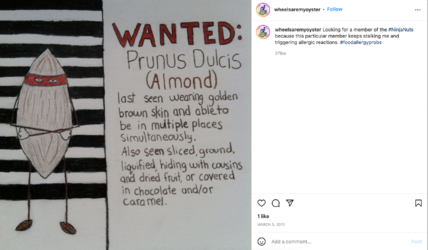 WANTED:
Prunus Dulcis
(Almond)
last seen wearing golden
brown skin and able to
be in multiple places
simultaneously.
Also seen sliced, ground,
liquified, hiding with cousins
and dried fruit, or covered
in chocolate and/or
caramel.
wheelsaremyoyster • Follow
wheelsaremyoyster Looking for a member of the #NinjaNuts
because this particular member keeps stalking me and
triggering allergic reactions. #foodallergyprobs
1 like
MARCH 5, 2013
Add a comment...
Post